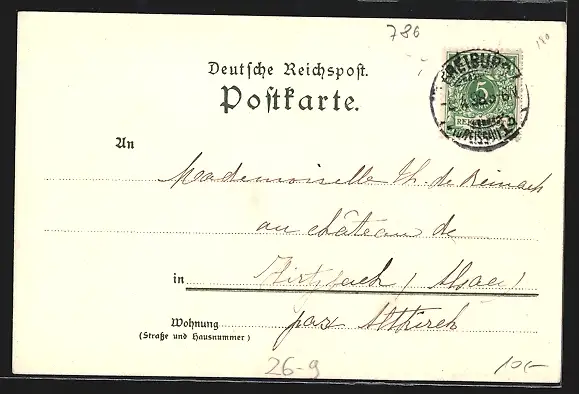 786
Deutsche Reichspost.
Postkarte.
FREIBURG
5
An
Mademoiselle Th. de Reinach
au château de
in Hirtzbach (Alsace)
Wohnung par Altkirch
(Straße und Hausnummer)
26-9